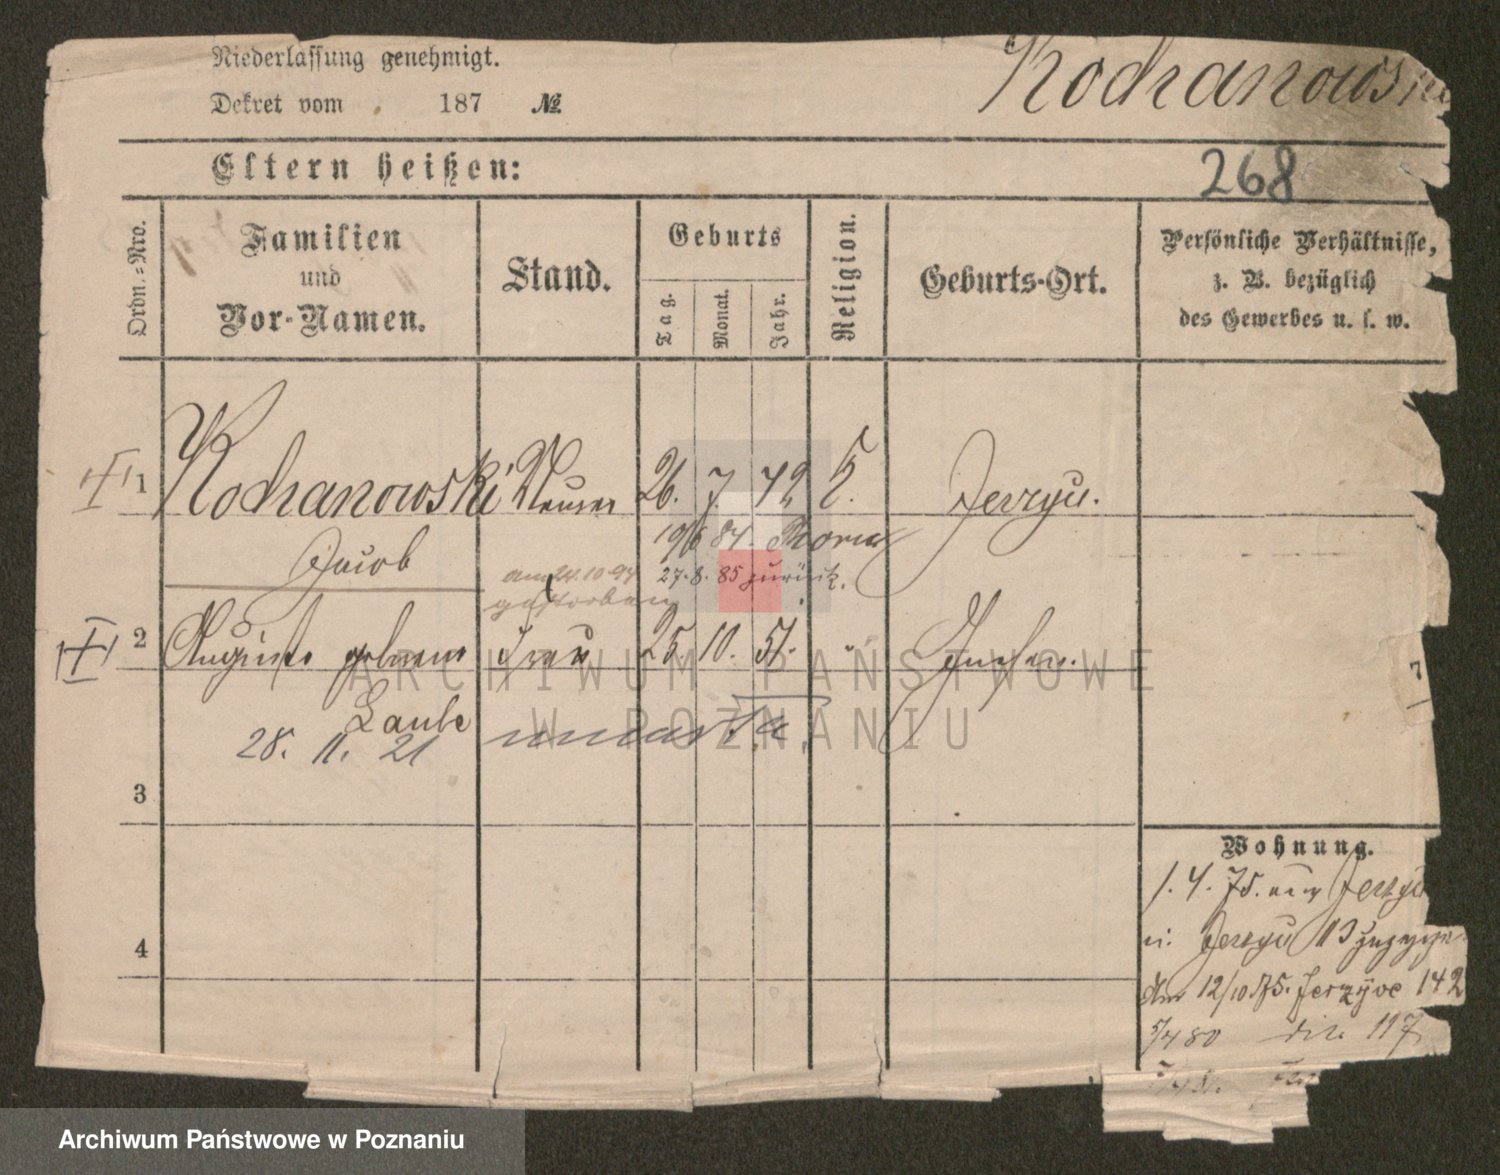 Niederlassung genehmigt.
Dekret vom 187 №
Kochanowski
Eltern heißen:
268
Ordn.=Nro.
Familien
und
Vor-Namen.
Stand.
Geburts
Tag.
Monat.
Jahr.
Religion.
Geburts-Ort.
Persönliche Verhältnisse,
z. B. bezüglich
des Gewerbes u. s. w.
1 Kochanowski Maurer 26. 7. 42 Jerzyce.
Jacob
19/6 84.
am 24.10.94 27.8.85 zurück.
gestorben
2 Auguste geborene Frau 25 10. 51.
Laube
28. 11. 21 umarła
7
3
Wohnung.
1. 4. 75. aus
Jerzyce 13
4
Am 12/10 75. Jerzyce 142
5/4 80 dito 117
ARCHIWUM PAŃSTWOWE
W POZNANIU
Archiwum Państwowe w Poznaniu